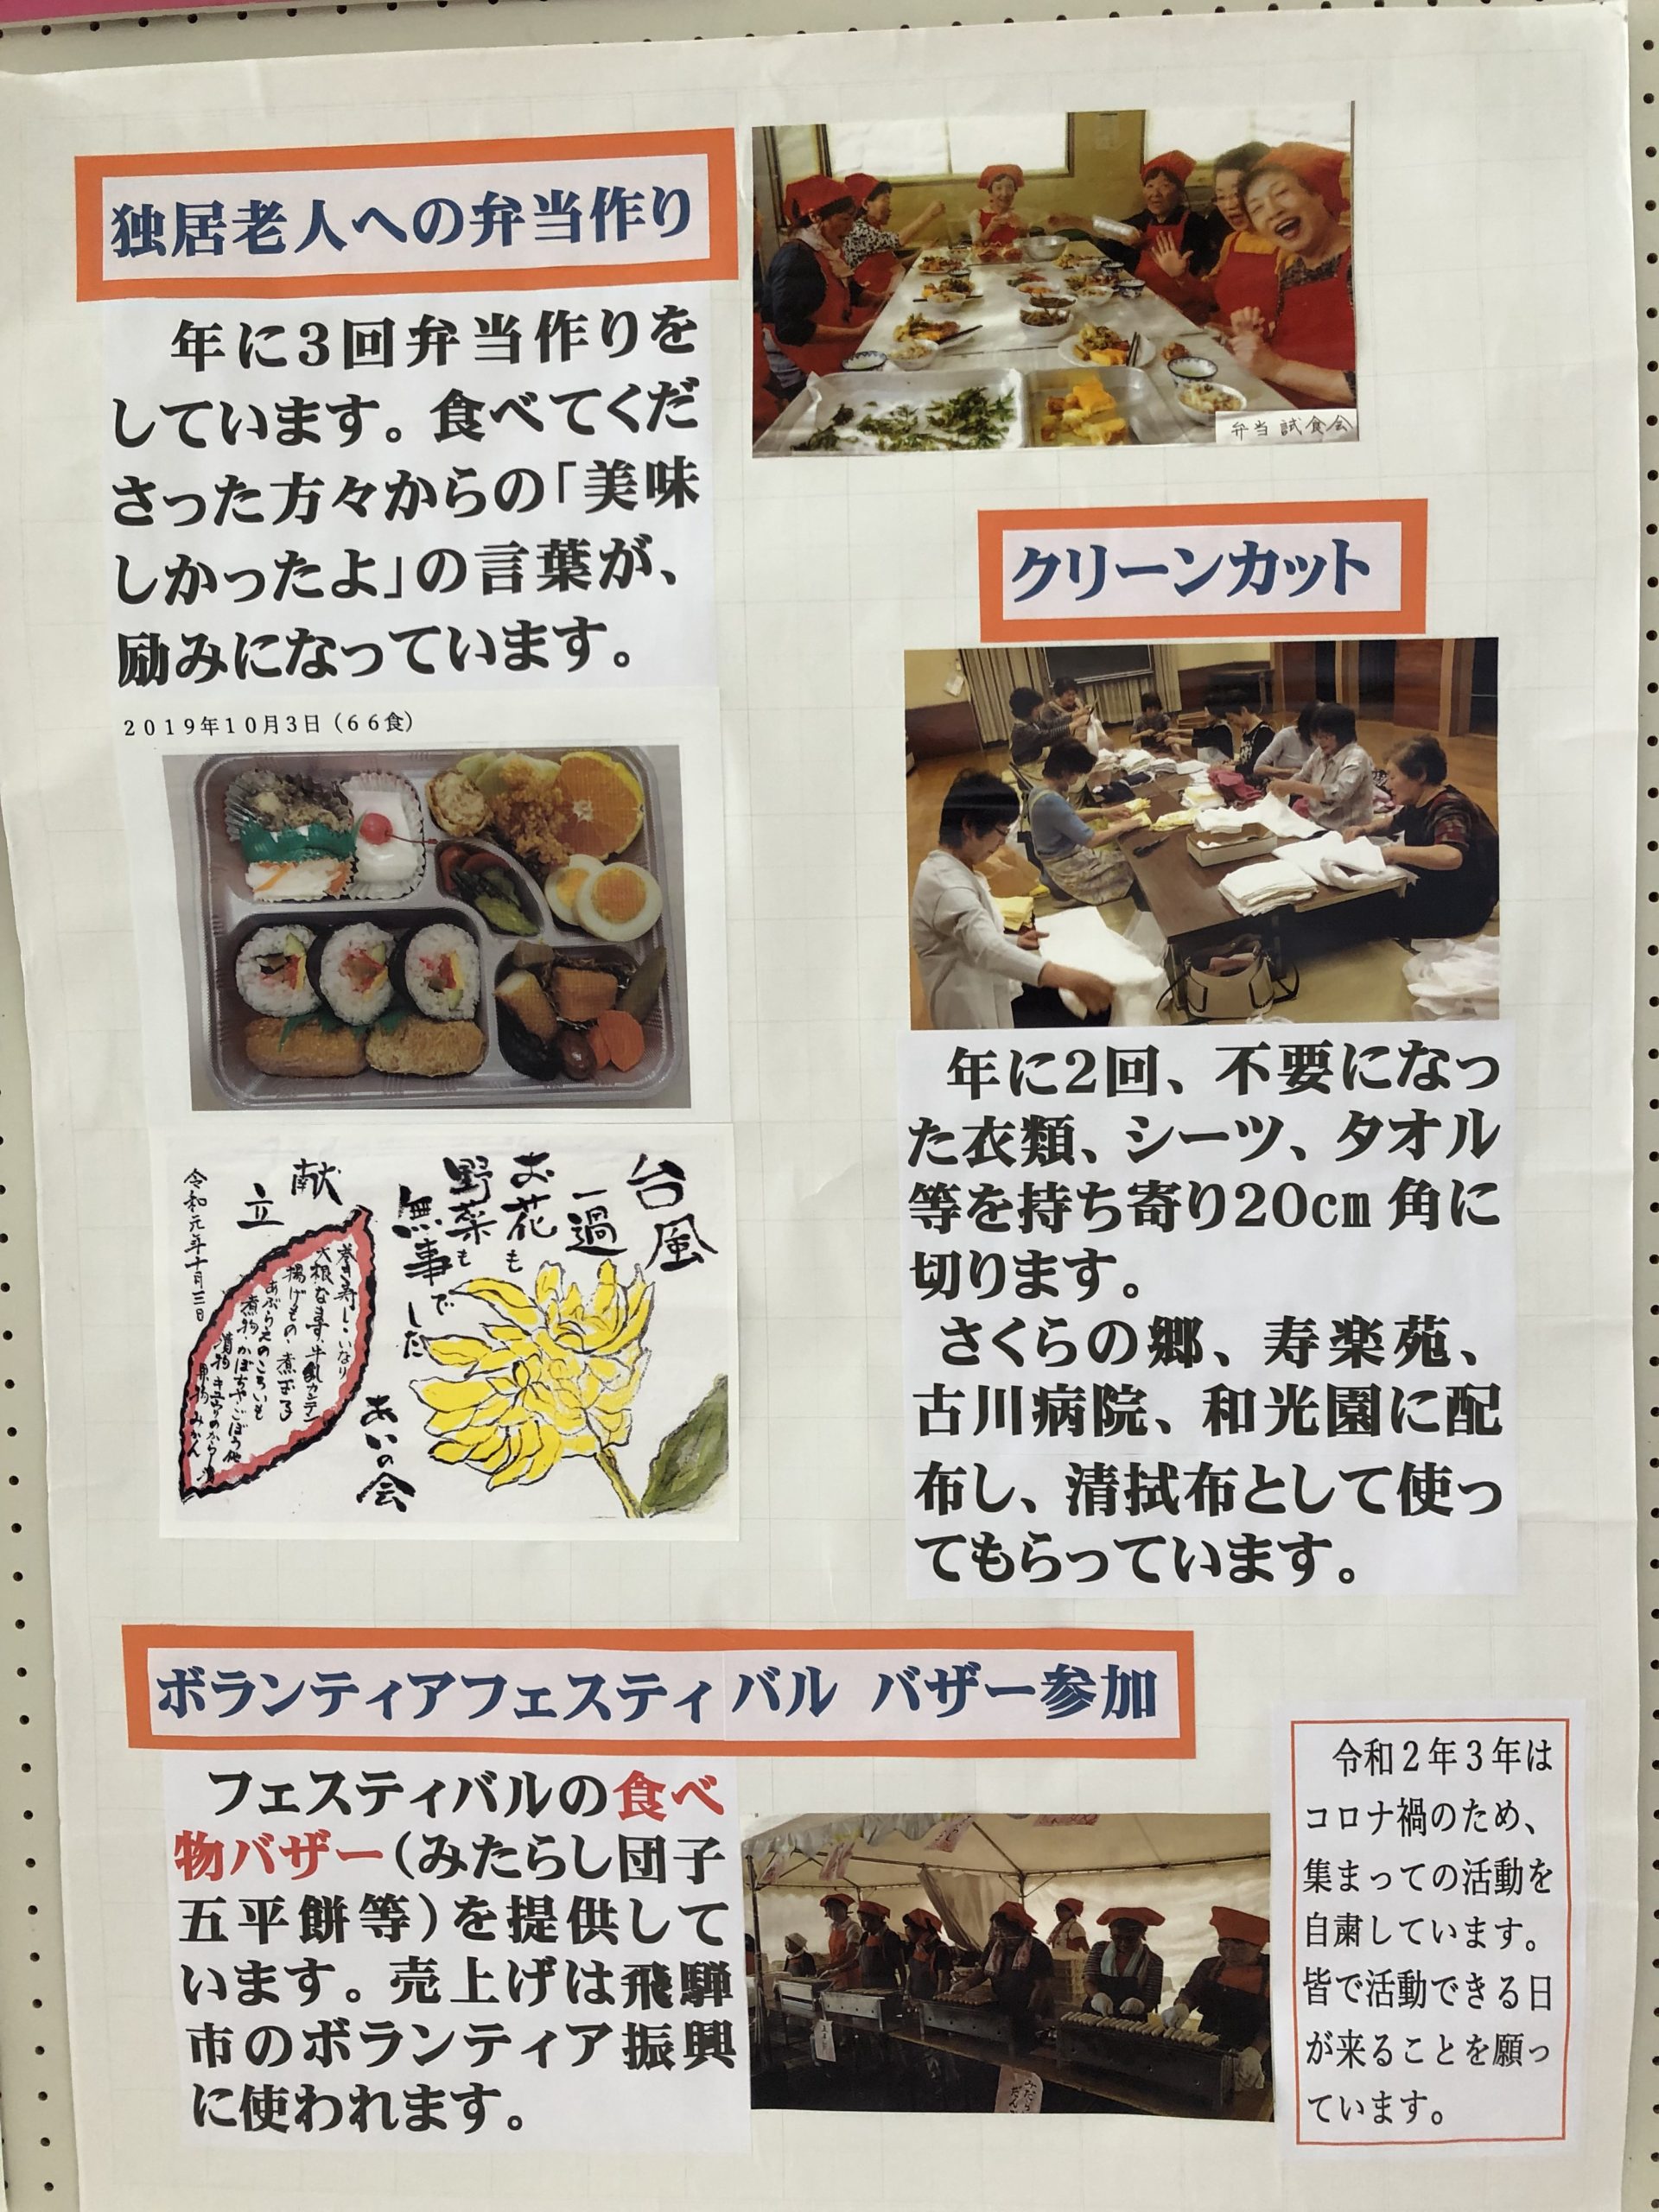 独居老人への弁当作り
年に3回弁当作りを
しています。食べてくだ
さった方々からの「美味
しかったよ」の言葉が、
励みになっています。
2019年10月3日(66食)
弁当試食会
台風
一過
お花も
野菜も
無事でした
あいの会
献立
巻き寿し・いなり
大根なます、牛乳カンテン
揚げもの・煮玉子
あぶらえのころいも
煮物・かぼちゃ・ごぼう他
漬物 キュウリのからし漬
果物 みかん
令和元年十月三日
クリーンカット
年に2回、不要になっ
た衣類、シーツ、タオル
等を持ち寄り20㎝角に
切ります。
さくらの郷、寿楽苑、
古川病院、和光園に配
布し、清拭布として使っ
てもらっています。
ボランティアフェスティバル バザー参加
フェスティバルの食べ
物バザー(みたらし団子
五平餅等)を提供して
います。売上げは飛騨
市のボランティア振興
に使われます。
令和2年3年は
コロナ禍のため、
集まっての活動を
自粛しています。
皆で活動できる日
が来ることを願っ
ています。